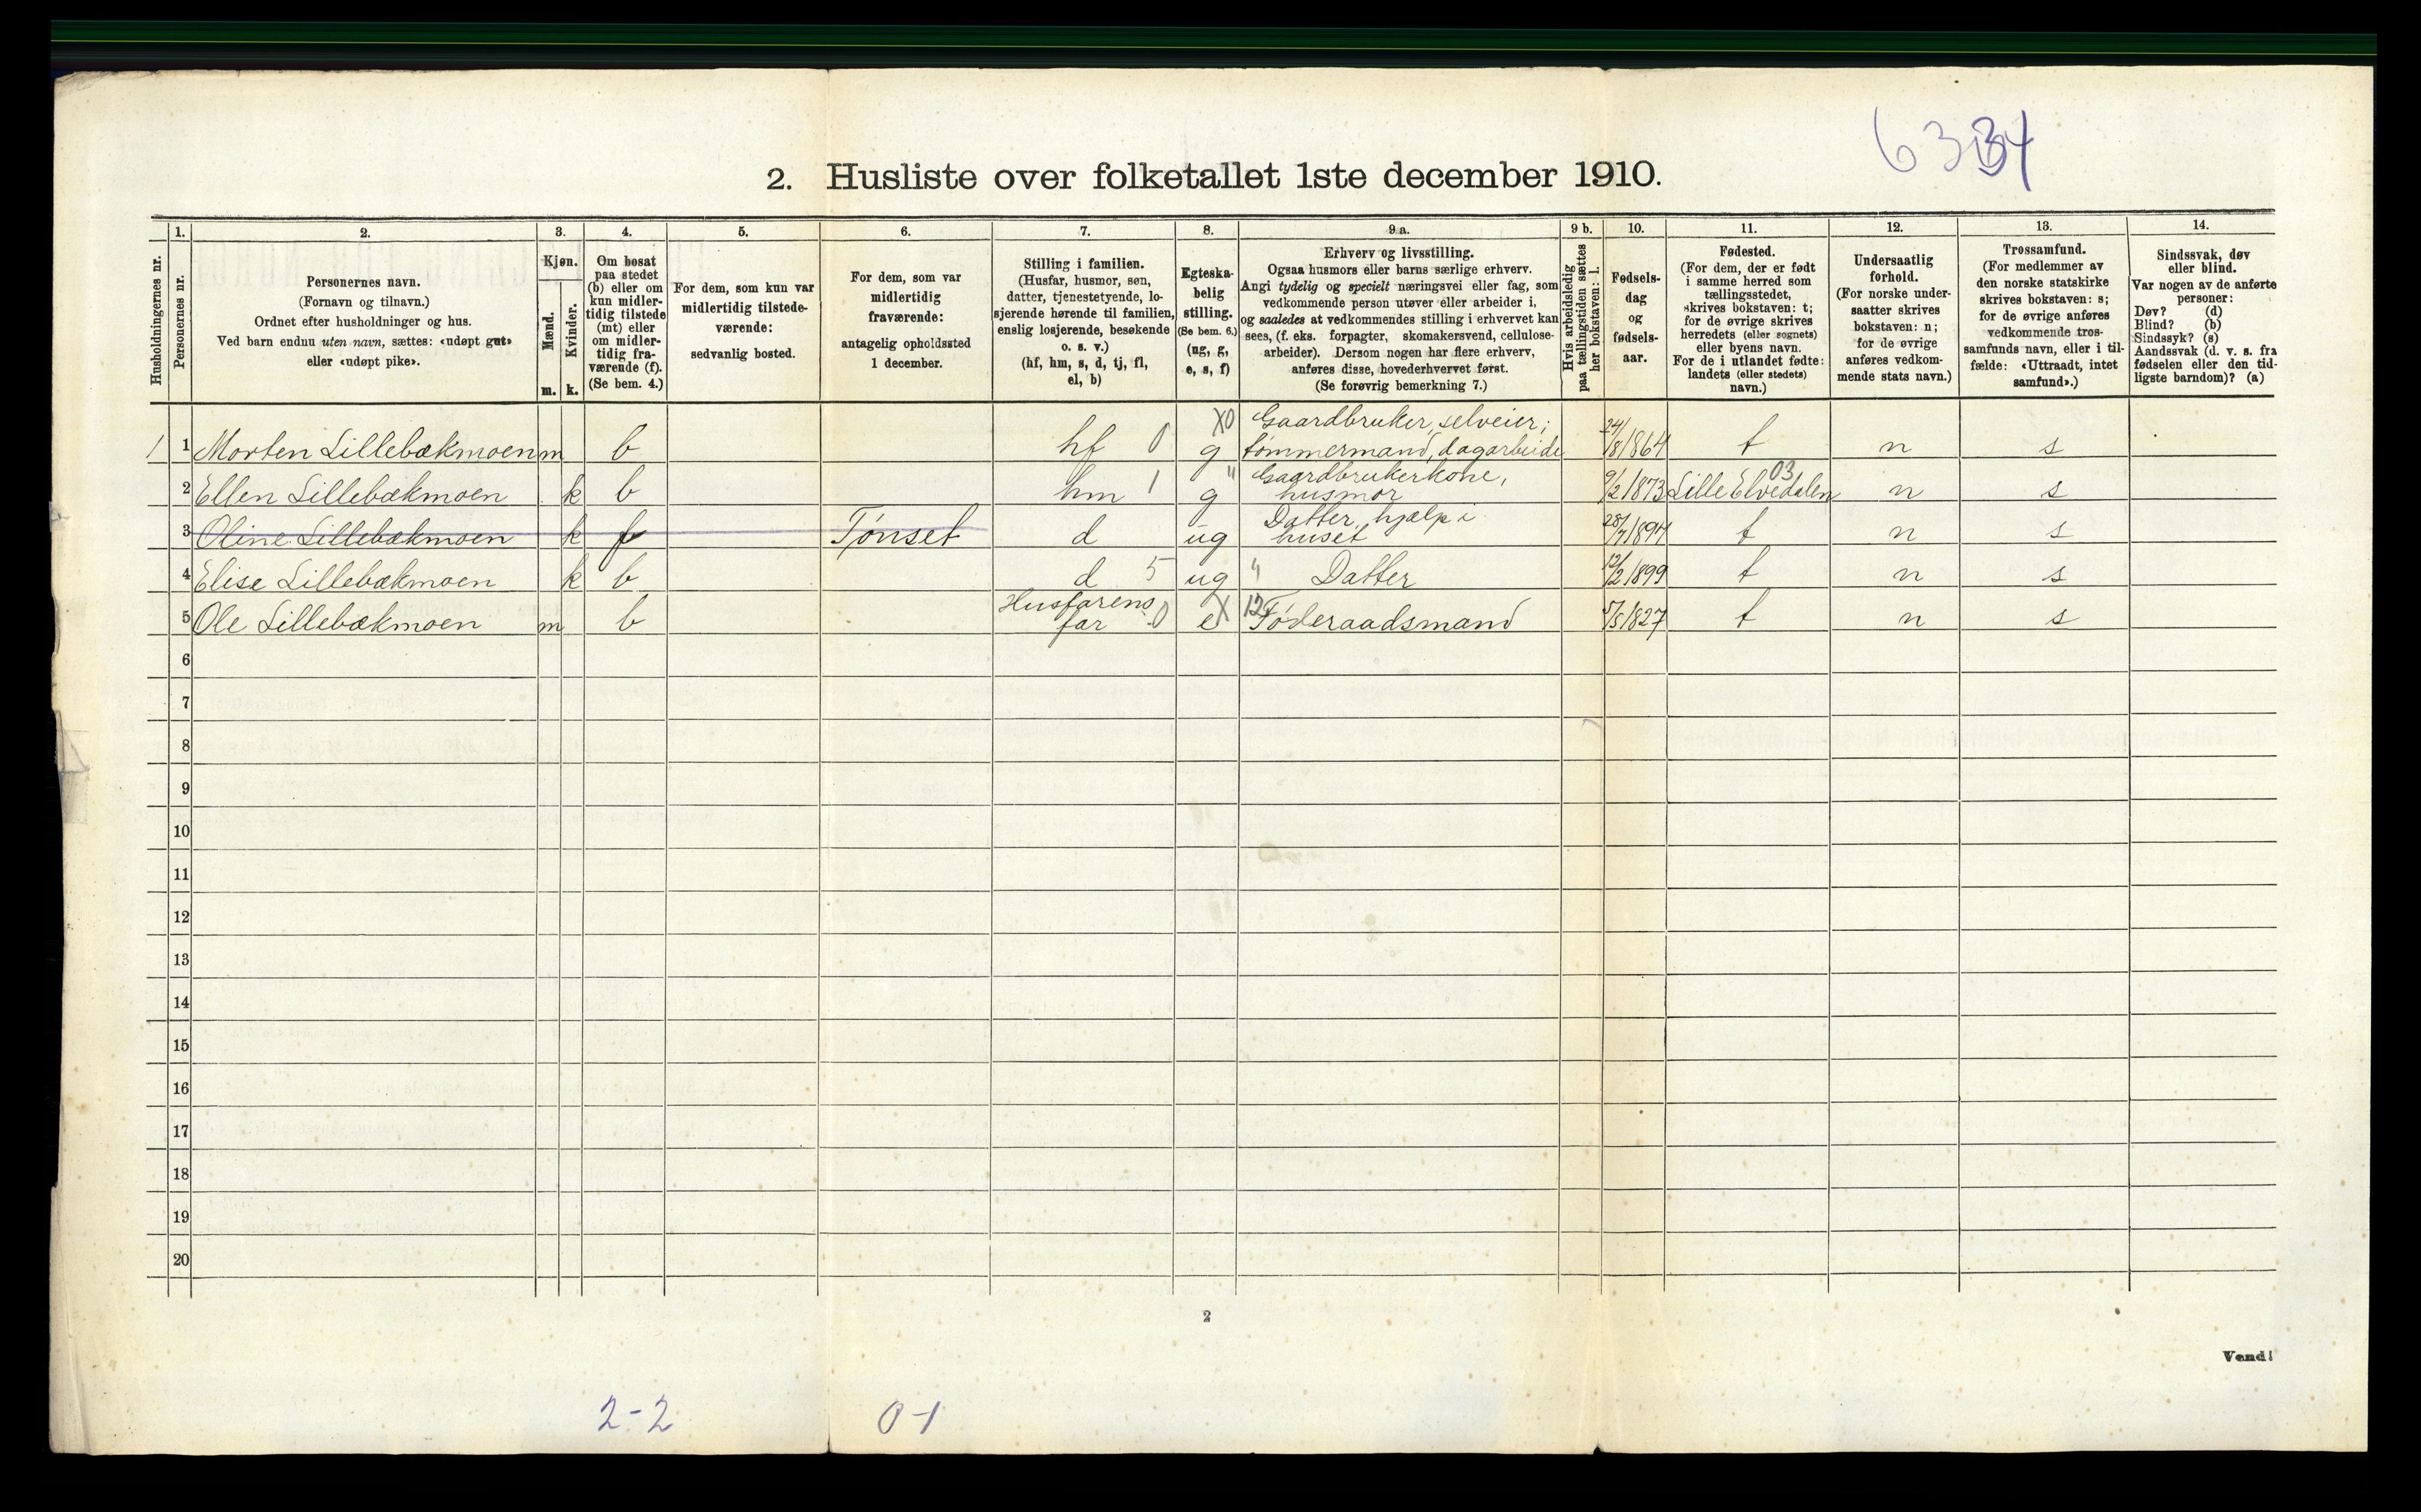 6334
2. Husliste over folketallet 1ste december 1910.
Husholdningernes nr.
1. Personernes nr.
2. Personernes navn.
(Fornavn og tilnavn.)
Ordnet efter husholdninger og hus.
Ved barn endnu uten navn, sættes: «udøpt gut»
eller «udøpt pike».
3. Kjøn.
Mænd. m.
Kvinder. k.
4. Om bosat
paa stedet
(b) eller om
kun midler-
tidig tilstede
(mt) eller
om midler-
tidig fra-
værende (f).
(Se bem. 4.)
5. For dem, som kun var
midlertidig tilstede-
værende:
sedvanlig bosted.
6. For dem, som var
midlertidig
fraværende:
antagelig opholdssted
1 december.
7. Stilling i familien.
(Husfar, husmor, søn,
datter, tjenestetyende, lo-
sjerende hørende til familien,
enslig losjerende, besøkende
o. s. v.)
(hf, hm, s, d, tj, fl,
el, b)
8. Egteska-
belig
stilling.
(Se bem. 6.)
(ug, g,
e, s, f)
9 a. Erhverv og livsstilling.
Ogsaa husmors eller barns særlige erhverv.
Angi tydelig og specielt næringsvei eller fag, som
vedkommende person utøver eller arbeider i,
og saaledes at vedkommendes stilling i erhvervet kan
sees, (f. eks. forpagter, skomakersvend, cellulose-
arbeider). Dersom nogen har flere erhverv,
anføres disse, hovederhvervet først.
(Se forøvrig bemerkning 7.)
9 b. Hvis arbeidsledig
paa tællingstiden sættes
her bokstaven: l.
10. Fødsels-
dag
og
fødsels-
aar.
11. Fødested.
(For dem, der er født
i samme herred som
tællingsstedet,
skrives bokstaven: t;
for de øvrige skrives
herredets (eller sognets)
eller byens navn.
For de i utlandet fødte:
landets (eller stedets)
navn.)
12. Undersaatlig
forhold.
(For norske under-
saatter skrives
bokstaven: n;
for de øvrige
anføres vedkom-
mende stats navn.)
13. Trossamfund.
(For medlemmer av
den norske statskirke
skrives bokstaven: s;
for de øvrige anføres
vedkommende tros-
samfunds navn, eller i til-
fælde: «Uttraadt, intet
samfund».)
14. Sindssvak, døv
eller blind.
Var nogen av de anførte
personer:
Døv? (d)
Blind? (b)
Sindssyk? (s)
Aandssvak (d. v. s. fra
fødselen eller den tid-
ligste barndom)? (a)
1 1 Morten Lillebækmoen m b hf 0 X0 g Gaardbruker, selveier;
tømmermand, dagarbeide 24/8 1864 t n s
2 Ellen Lillebækmoen k b hm 1 g " Gaardbrukerkone,
husmor 9/2 1873 Lille Elvedalen 03 n s
3 Oline Lillebækmoen k f Tønset d ug Datter, hjælp i
huset 28/7 1894 t n s
4 Elise Lillebækmoen k b d 5 ug " Datter 12/2 1899 t n s
5 Ole Lillebækmoen m b Husfarens
far 0 e X 12 Føderaadsmand 5/5 1827 t n s
6
7
8
9
10
11
12
13
14
15
16
17
18
19
20
2
Vend!
2-2 0-1